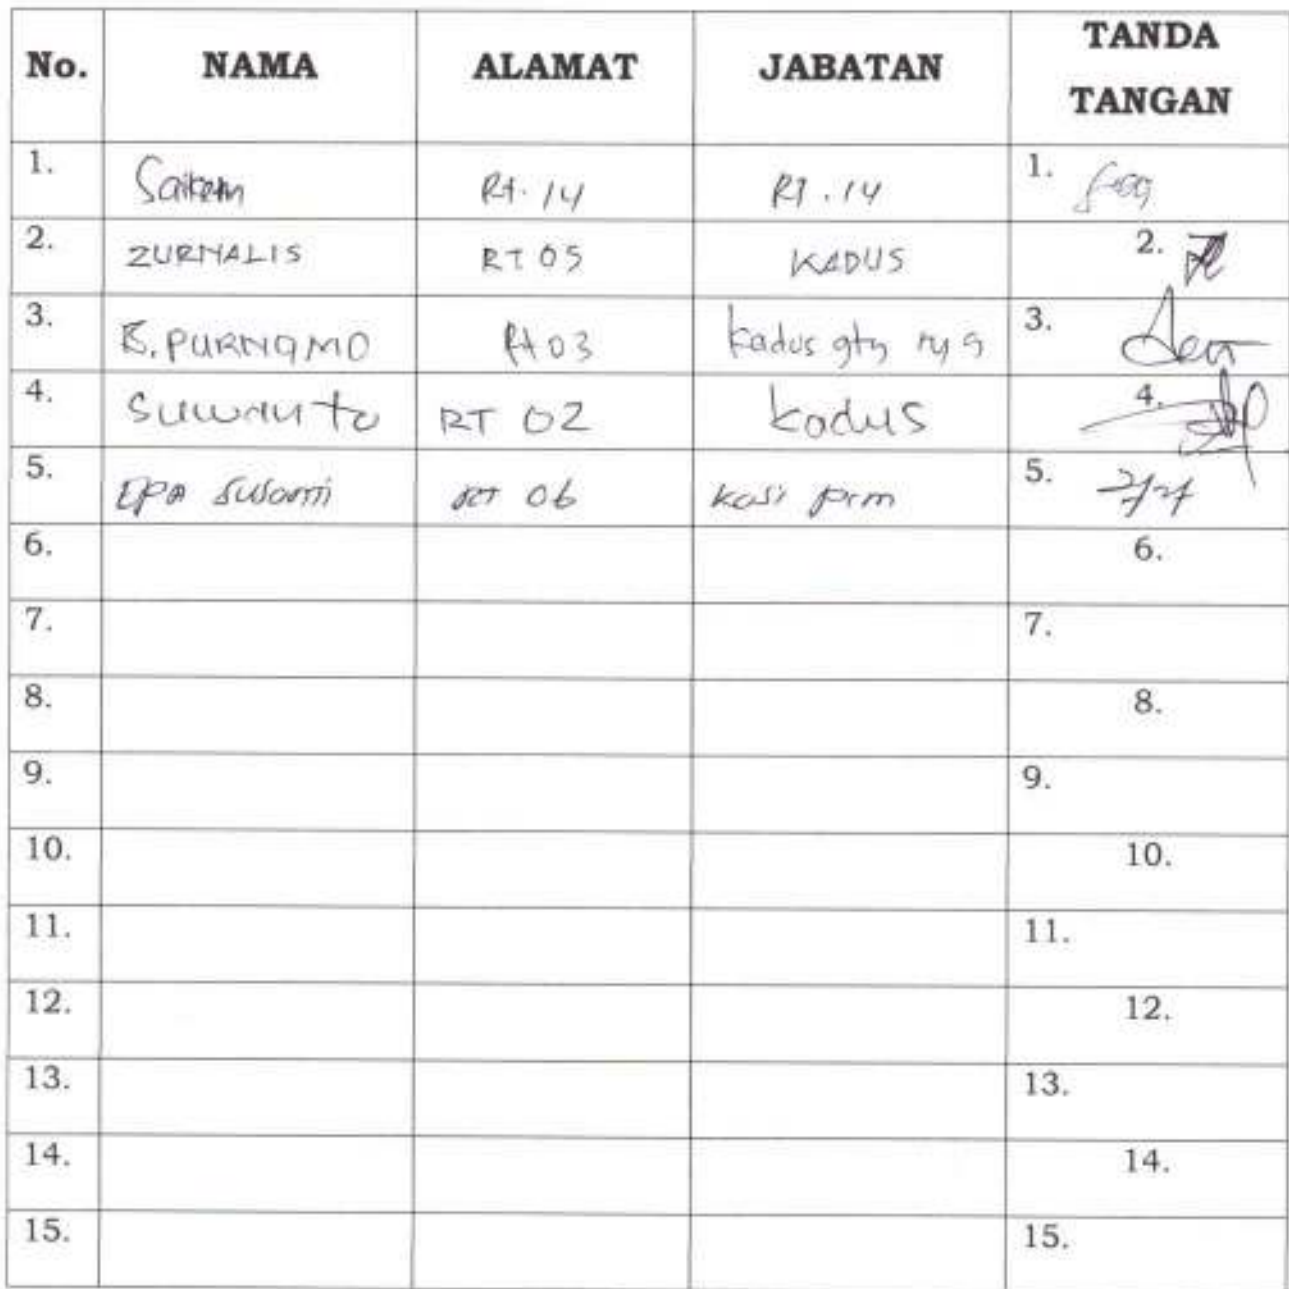 No. NAMA ALAMAT JABATAN TANDA TANGAN
1. Saikem Rt. 14 RT. 14 1.
2. ZURNALIS RT 05 KADUS 2.
3. PURNOMO Rt 03 kadus 3.
4. Suwanto RT 02 kadus 4.
5. EPA Susanti RT 06 kasi prm 5.
6. 6.
7. 7.
8. 8.
9. 9.
10. 10.
11. 11.
12. 12.
13. 13.
14. 14.
15. 15.